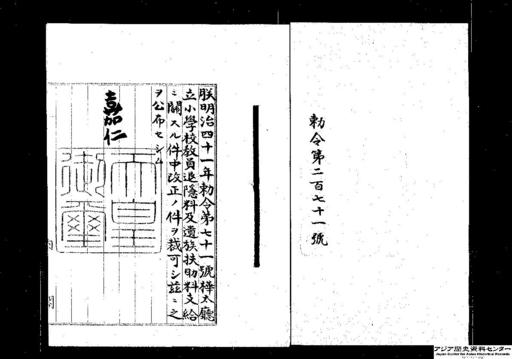 勅令第二百七十一號
朕明治四十一年勅令第七十一號樺太廳
立小學校教員退隱料及遺族扶助料支給
ニ關スル件中改正ノ件ヲ裁可シ茲ニ之
ヲ公布セシム
嘉仁
天皇
御璽
アジア歴史資料センター
Japan Center for Asian Historical Records